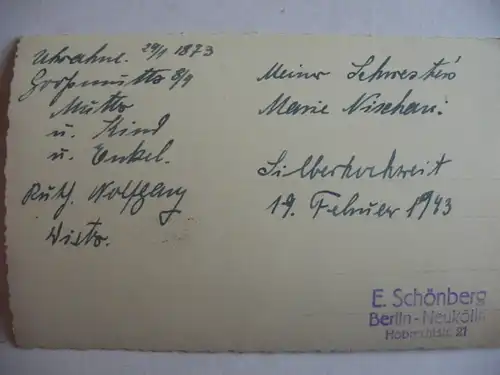 Urahne. 29/1 1873
Großmutter 8/9
Mutter
u. Kind
u. Enkel.
Ruth. Wolfgang
Meine Schwester
Marie
Silberhochzeit
19. Februar 1943
E. Schönberg
Berlin-Neukölln
Hobrechtstr. 21